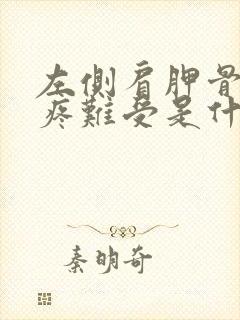 左側肩胛骨
疼難受是什
秦明奇